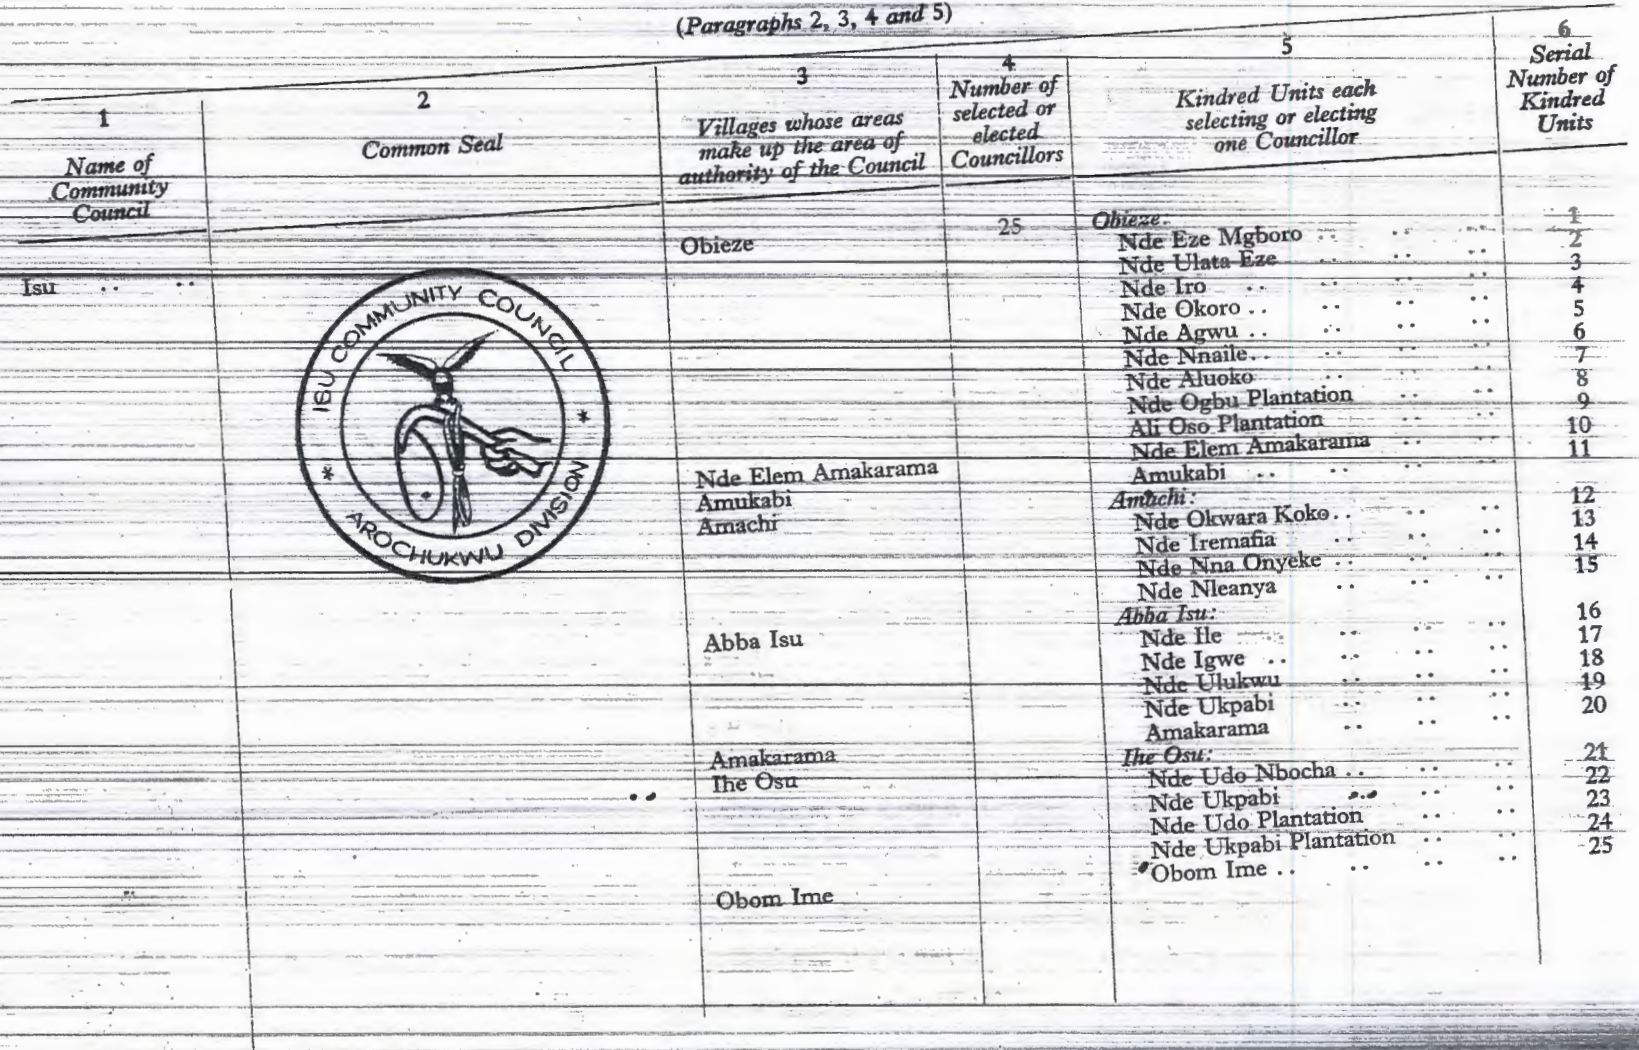 (Paragraphs 2, 3, 4 and 5)
1
Name of
Community
Council
2
Common Seal
3
Villages whose areas
make up the area of
authority of the Council
4
Number of
selected or
elected
Councillors
5
Kindred Units each
selecting or electing
one Councillor
6
Serial
Number of
Kindred
Units
Isu .. ..
ISU COMMUNITY COUNCIL
* *
AROCHUKWU DIVISION
Obieze
Nde Elem Amakarama
Amukabi
Amachi
Abba Isu
Amakarama
Ihe Osu
Obom Ime
25
Obieze:
Nde Eze Mgboro .. .. .. 1
Nde Ulata Eze .. .. .. 2
Nde Iro .. .. .. .. 3
Nde Okoro .. .. .. .. 4
Nde Agwu .. .. .. .. 5
Nde Nnaile .. .. .. .. 6
Nde Aluoko .. .. .. 7
Nde Ogbu Plantation .. .. 8
Ali Oso Plantation .. .. 9
Nde Elem Amakarama .. .. 10
Amukabi .. .. .. .. 11
Amachi:
Nde Okwara Koko .. .. .. 12
Nde Iremafia .. .. .. 13
Nde Nna Onyeke .. .. .. 14
Nde Nleanya .. .. .. 15
Abba Isu:
Nde Ile .. .. .. 16
Nde Igwe .. .. .. .. 17
Nde Ulukwu .. .. .. 18
Nde Ukpabi .. .. .. 19
Amakarama .. .. .. 20
Ihe Osu:
Nde Udo Nbocha .. .. .. 21
Nde Ukpabi .. .. .. 22
Nde Udo Plantation .. .. 23
Nde Ukpabi Plantation .. .. 24
Obom Ime .. .. .. .. 25